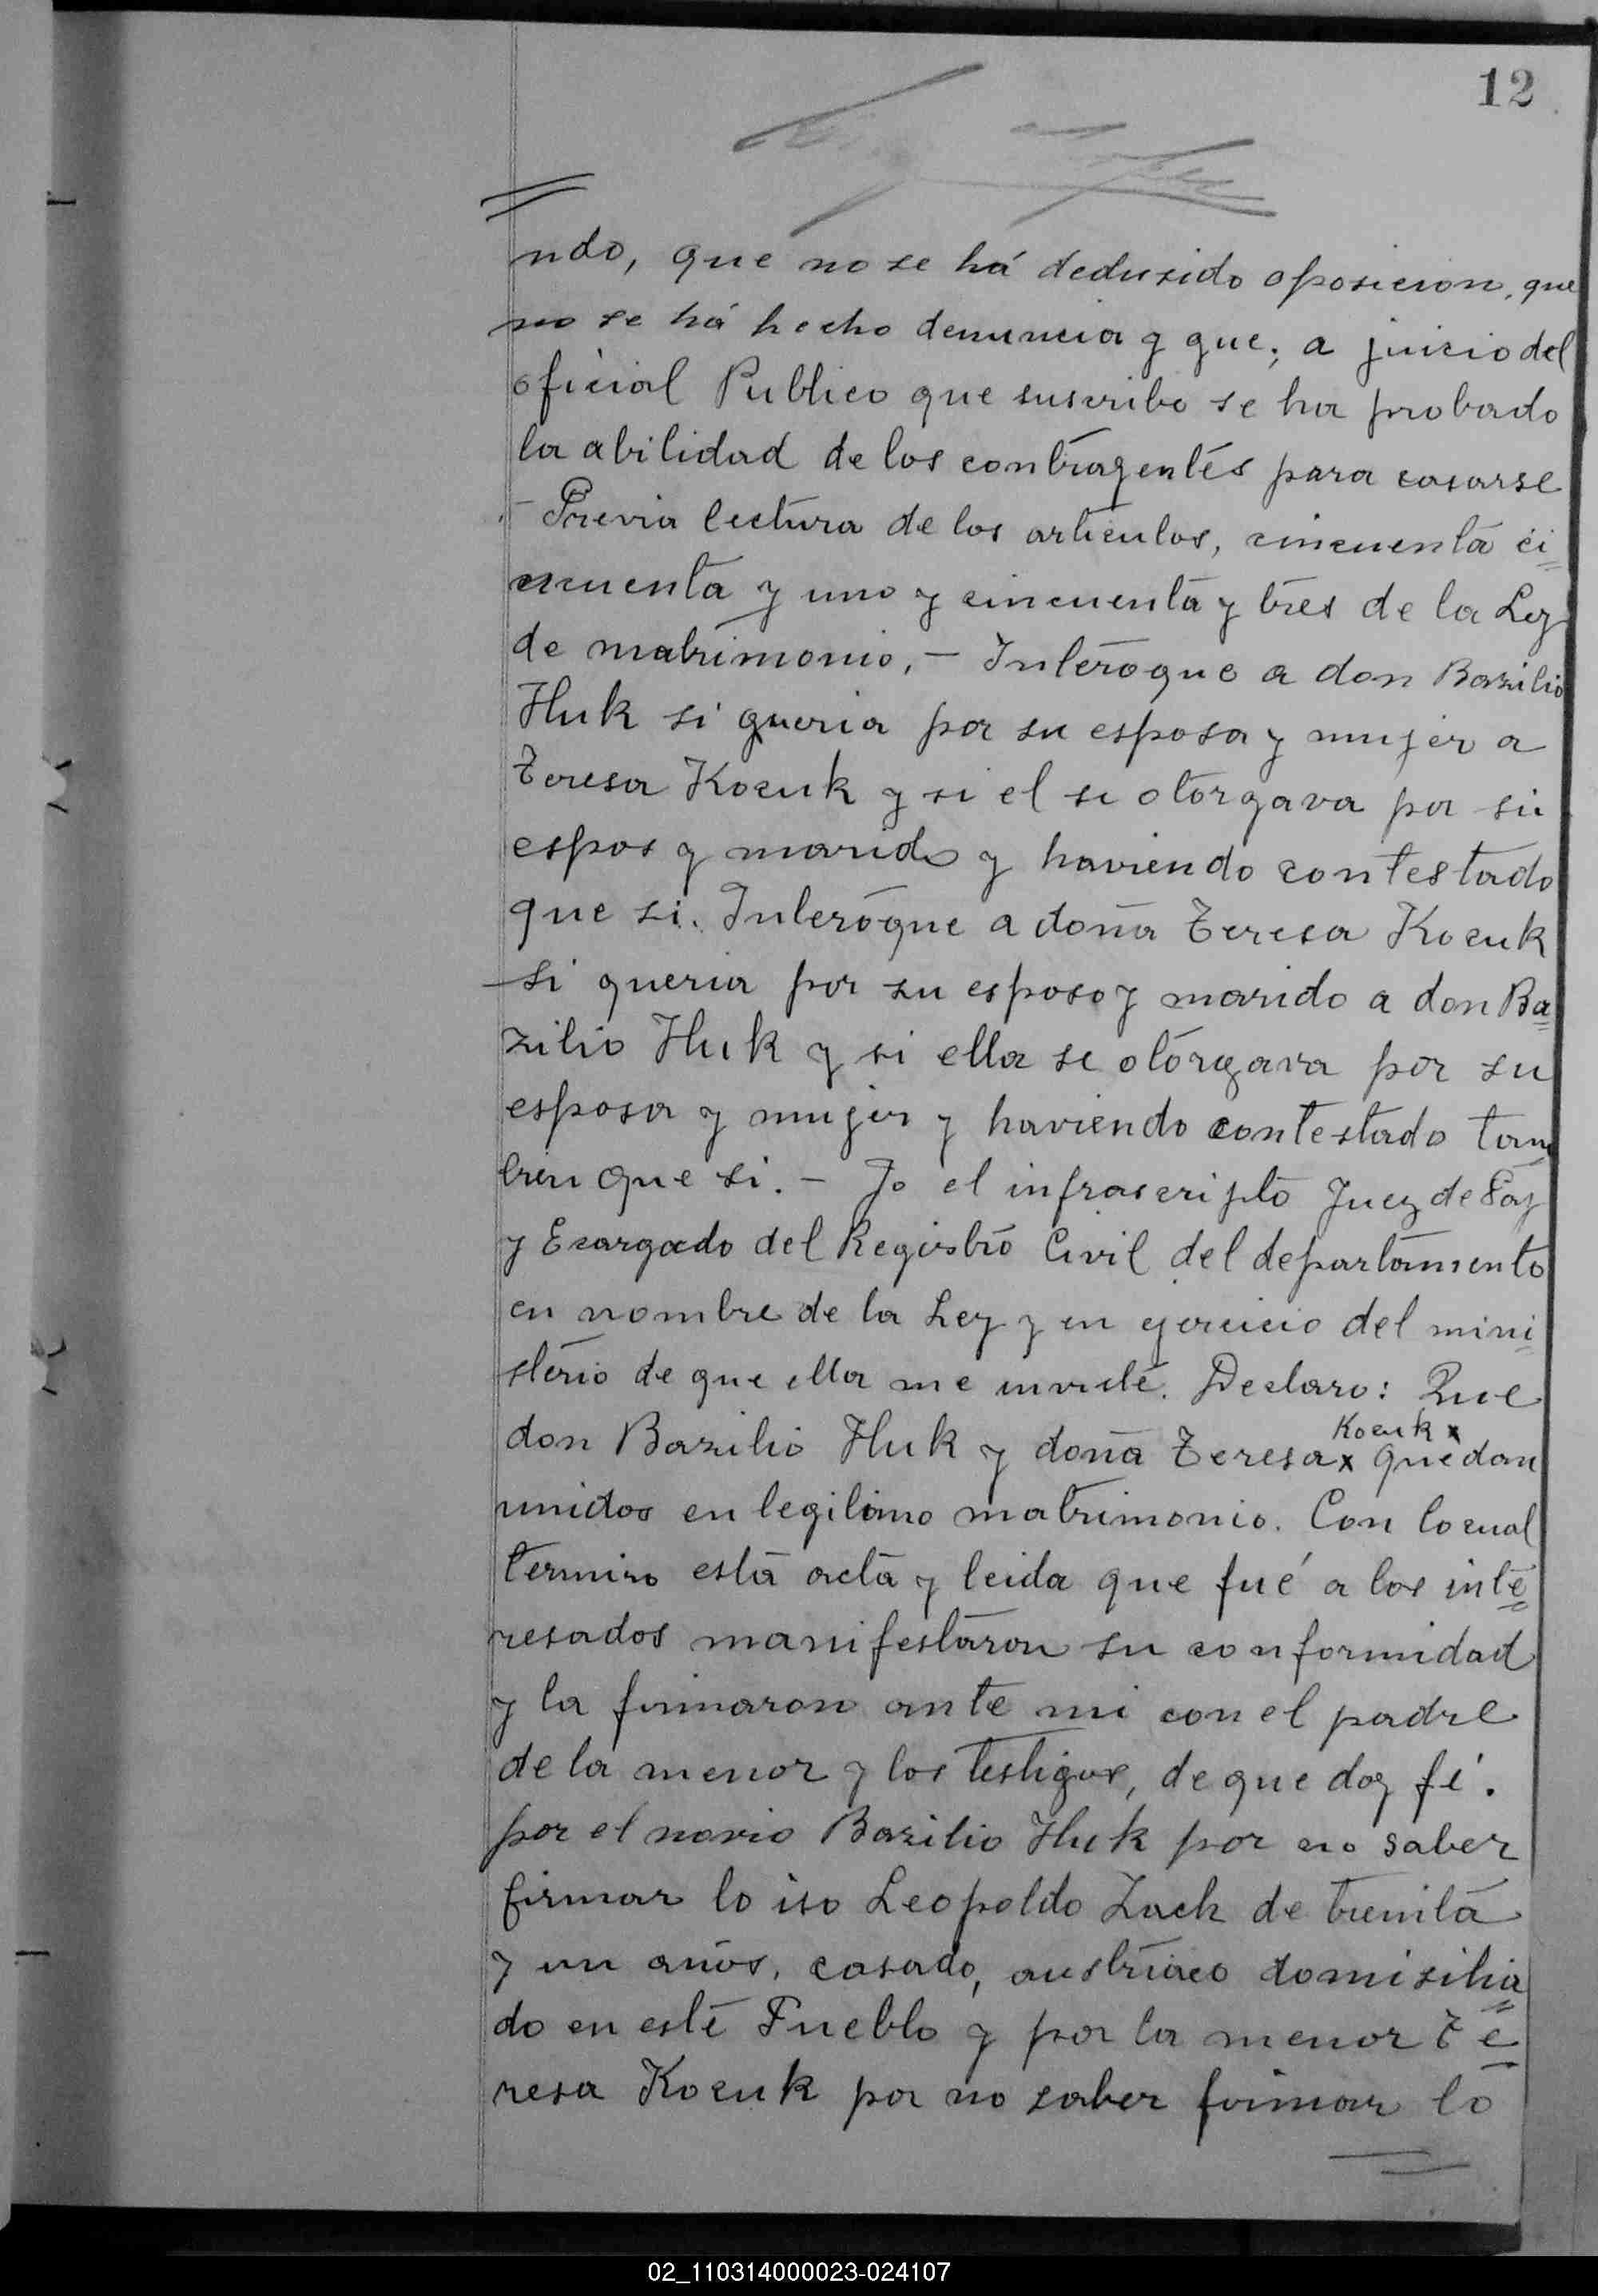 12
ndo, que no se há dedusido oposicion, que
no se há hecho denuncia y que; a juicio del
oficial Publico que suscribe se ha probado
la abilidad de los contragentes para casarse
- Previa lectura de los articulos, cincuenta ci=
ncuenta y uno y cincuenta y tres de la Ley
de matrimonio, - Interogue a don Bazilio
Huk si queria por su esposa y mujer a
Teresa Kocuk y si el se otorgava por su
espos y marido y haviendo contestado
que si. Interogue a doña Teresa Kocuk
si queria por su esposo y marido a don Ba=
zilio Huk y si ella se otorgava por su
esposa y mujer y haviendo contestado tam
bien que si. - Jo el infrascripto Juez de Paz
y Ecargado del Registro Civil del departamento
en nombre de la Ley y en ejercicio del mini=
sterio de que ella me inviste. Declaro: Que
don Bazilio Huk y doña Teresa x Kocuk x quedan
unidos en legitimo matrimonio. Con lo cual
termino esta acta y leida que fué a los inte=
resados manifestaron su conformidad
y la firmaron ante mi con el padre
de la menor y los testigos, de que doy fé.
por el novio Bazilio Huk por no saber
firmar lo iso Leopoldo Zack de treinta
y un años, casado, austriaco domisilia=
do en este Pueblo y por la menor Te=
resa Kocuk por no saber firmar lo
02_110314000023-024107